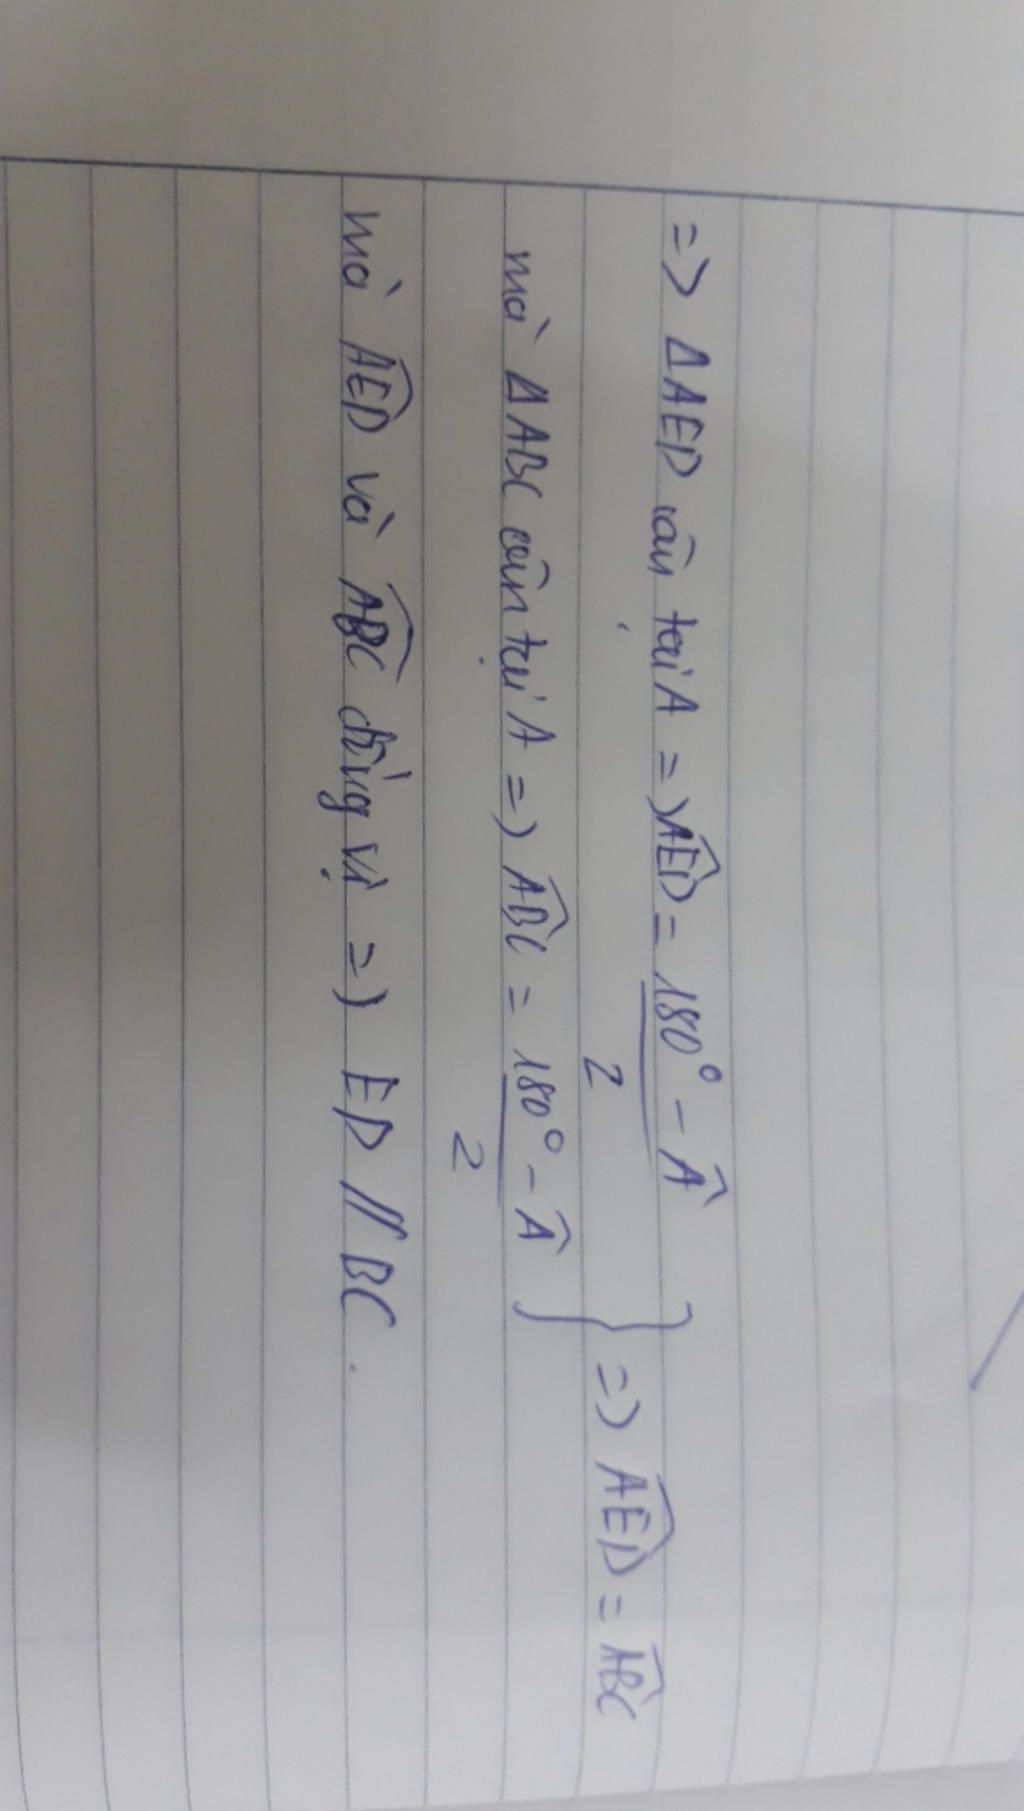 => ΔAED cân tại A => \widehat{AED} = \frac{180° - \widehat{A}}{2}
mà ΔABC cân tại A => \widehat{ABC} = \frac{180° - \widehat{A}}{2}
} => \widehat{AED} = \widehat{ABC}
mà \widehat{AED} và \widehat{ABC} đồng vị => ED // BC.